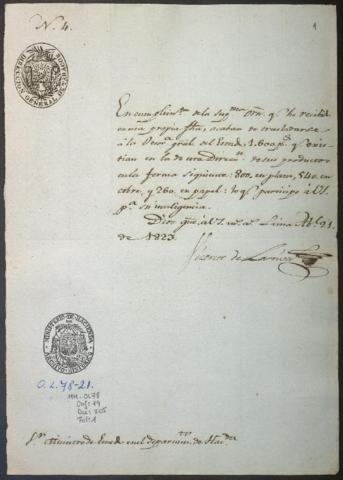 N. 4.
1
DIRECCION GENERAL
En cumplim.to de la sup.ma orn. q.e he recibido
con esta propia fha, acaban de trasladarse
à la Tesor.a gral. del Estado 1.600 p.s q.e existian
en la de esta Direc.n de sus productos
en la forma siguiente: 800, en plata, 540. en
cobre, y 260. en papel: lo q.e participo à V.S.
p.a su inteligencia.
Dios gue. à V.S. m.s a.s Lima Ab.l 21.
de 1823.
MINISTERIO DE HACIENDA
ARCHIVO HISTORICO
O.L. 78-21.
MH-OL78
Caj: 19
Doc: 205
Fol: 1
S.or Ministro de Estado en el departam.to de Haz.da